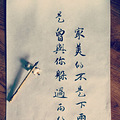 最美的不是下雨天
是曾與你躲過雨的